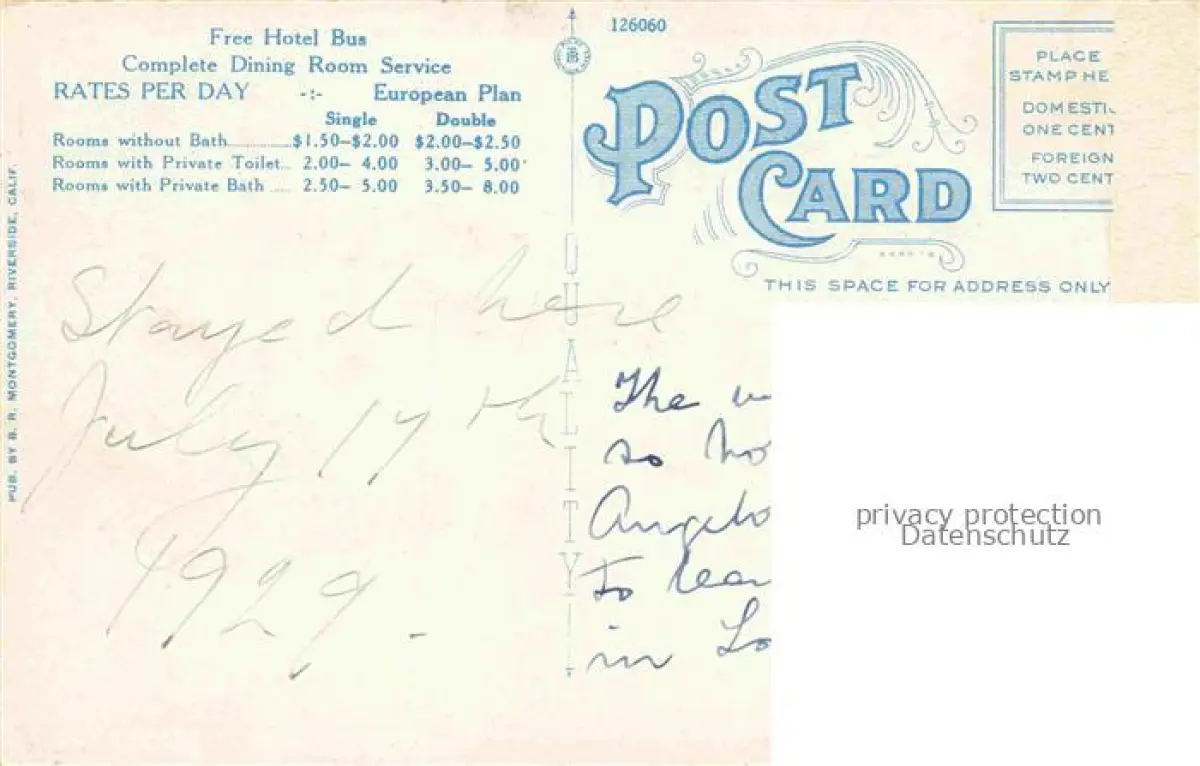 Free Hotel Bus
Complete Dining Room Service
RATES PER DAY -:- European Plan
Single Double
Rooms without Bath............ $1.50–$2.00 $2.00–$2.50
Rooms with Private Toilet... 2.00– 4.00 3.00– 5.00
Rooms with Private Bath ..... 2.50– 5.00 3.50– 8.00
PUB. BY B. R. MONTGOMERY, RIVERSIDE, CALIF.
Stayed here
July 17th
1929.
QUALITY
126060
POST CARD
PLACE
STAMP HE
DOMESTIC
ONE CENT
FOREIGN
TWO CENT
THIS SPACE FOR ADDRESS ONLY
The
so
Angelo
To
in Lo
privacy protection
Datenschutz